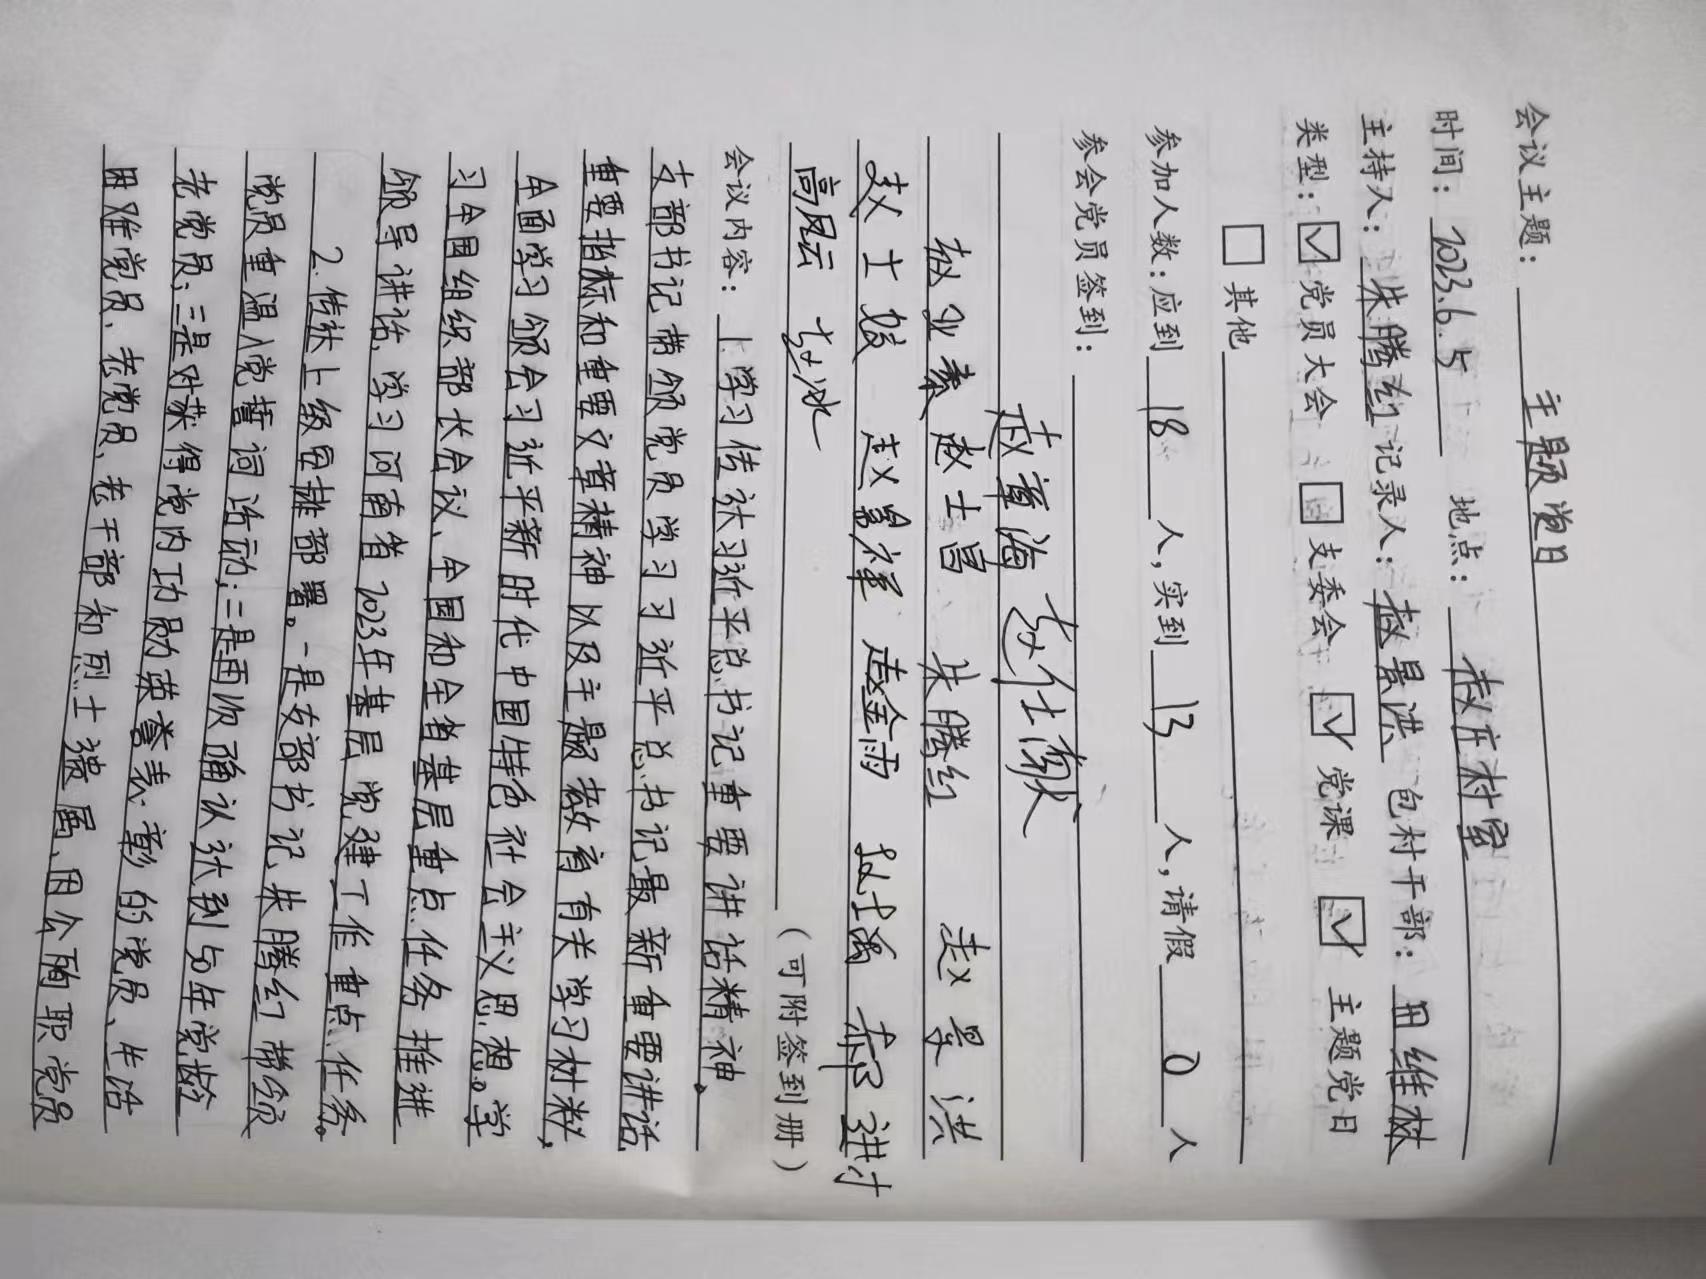 会议主题：主题党日
时间：2023.6.5 地点：赵庄村室
主持人：朱腾红 记录人：赵景洪 包村干部：田维林
类型：☑党员大会 □支委会 ☑党课 ☑主题党日
□其他
参加人数：应到 18 人，实到 13 人，请假 0 人
参会党员签到：
赵尊海 赵仕献
赵业素 赵士昌 朱腾红 赵景洪
赵士 赵景 赵金雨 进村
高凤云 赵冰 （可附签到册）
会议内容：1.学习传达习近平总书记重要讲话精神。
支部书记带领党员学习习近平总书记最新重要讲话
重要指标和重要文章精神以及主题教育有关学习材料，
全面学习领会习近平新时代中国特色社会主义思想。学
习全国组织部长会议、全国和全省基层重点任务推进
领导讲话，学习河南省2023年基层党建工作重点任务。
2.传达上级安排部署。一是支部书记朱腾红带领
党员重温入党誓词活动；二是再次确认达到50年党龄
老党员；三是对获得党内功勋荣誉表彰的党员、生活
困难党员、老党员、老干部和烈士遗属、因公殉职党员